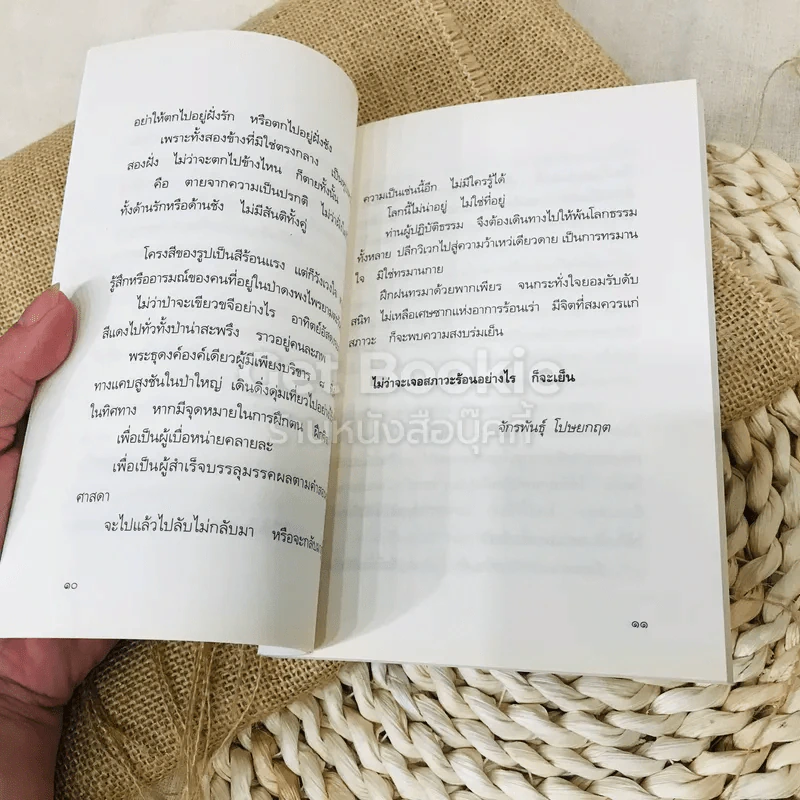 อย่าให้ตกไปอยู่ฝั่งรัก หรือตกไปอยู่ฝั่งชัง
เพราะทั้งสองข้างที่มิใช่ตรงกลาง
สองฝั่ง ไม่ว่าจะตกไปข้างไหน ก็ตายทั้งนั้น
คือ ตายจากความเป็นปรกติ
ทั้งด้านรักหรือด้านชัง ไม่มีสันติทั้งคู่
โครงสีของรูปเป็นสีร้อนแรง แต่ก็วังเวงใจ
รู้สึกหรืออารมณ์ของคนที่อยู่ในป่าดงพงไพรยาม
ไม่ว่าป่าจะเขียวขจีอย่างไร
สีแดงไปทั่วทั้งป่าน่าสะพรึง ราวอยู่คนละภพ
พระธุดงค์องค์เดียวผู้มีเพียงบริขาร ๘
ทางแคบสูงชันในป่าใหญ่ เดินดิ่งดุ่มเที่ยวไปอย่าง
ในทิศทาง หากมีจุดหมายในการฝึกตน
เพื่อเป็นผู้เบื่อหน่ายคลายละ
เพื่อเป็นผู้สำเร็จบรรลุมรรคผลตามคำสอน
ศาสดา
จะไปแล้วไปลับไม่กลับมา
๑๐
ความเป็นเช่นนี้อีก ไม่มีใครรู้ได้
โลกนี้ไม่น่าอยู่ ไม่ใช่ที่อยู่
ท่านผู้ปฏิบัติธรรม จึงต้องเดินทางไปให้พ้นโลกธรรม
ทั้งหลาย ปลีกวิเวกไปสู่ความว้าเหว่เดียวดาย เป็นการทรมาน
ใจ มิใช่ทรมานกาย
ฝึกฝนทรมาด้วยพากเพียร จนกระทั่งใจยอมรับดับ
สนิท ไม่เหลือเศษซากแห่งอาการร้อนเร่า มีจิตที่สมควรแก่
สภาวะ ก็จะพบความสงบร่มเย็น
ไม่ว่าจะเจอสภาวะร้อนอย่างไร ก็จะเย็น
จักรพันธุ์ โปษยกฤต
๑๑
Get Bookie
ร้านหนังสือบุ๊คกี้